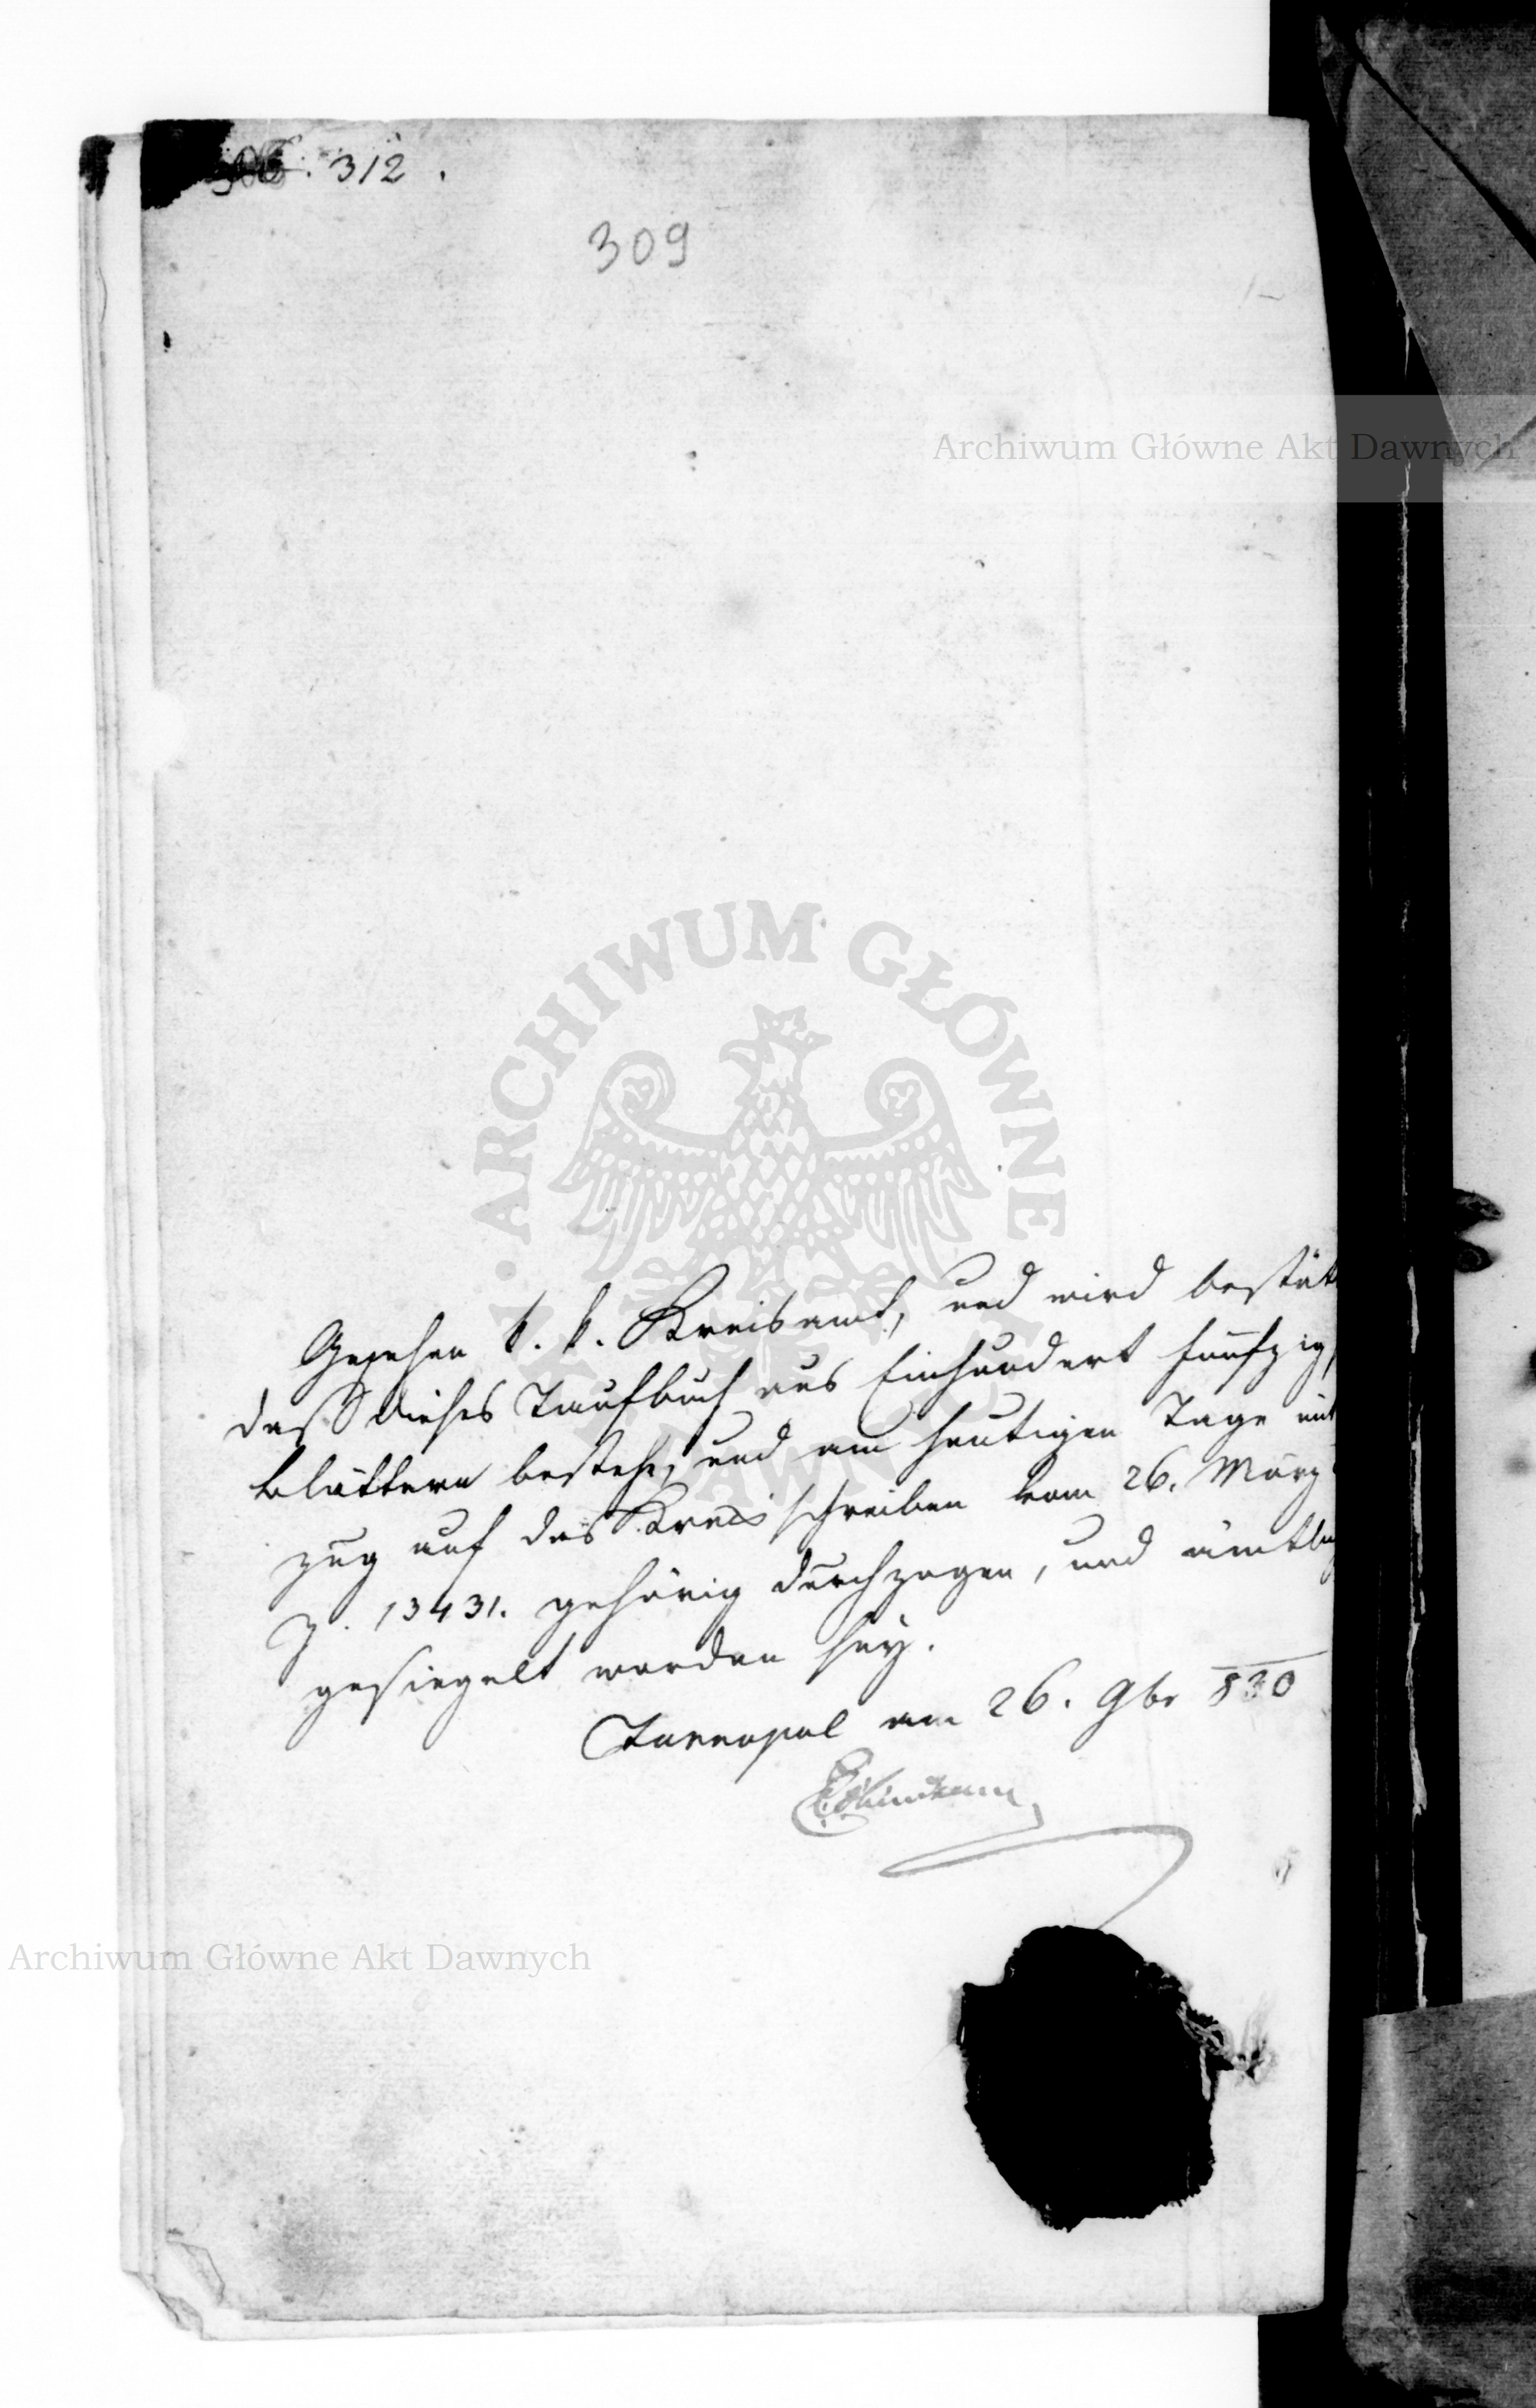 312.
309
Archiwum Główne Akt Dawnych
ARCHIWUM GŁÓWNE
Gesehen k. k. Kreisamt, und wird bestät
daß dieses Taufbuch aus Einhundert fünfzig
Blättern bestehe, und am heutigen Tage mit
zug auf das Kreisschreiben vom 26. März
Z. 13431. gehörig durchzogen, und ämtlich
gesiegelt worden sey.
Tarnopol am 26. 9br 830
Archiwum Główne Akt Dawnych